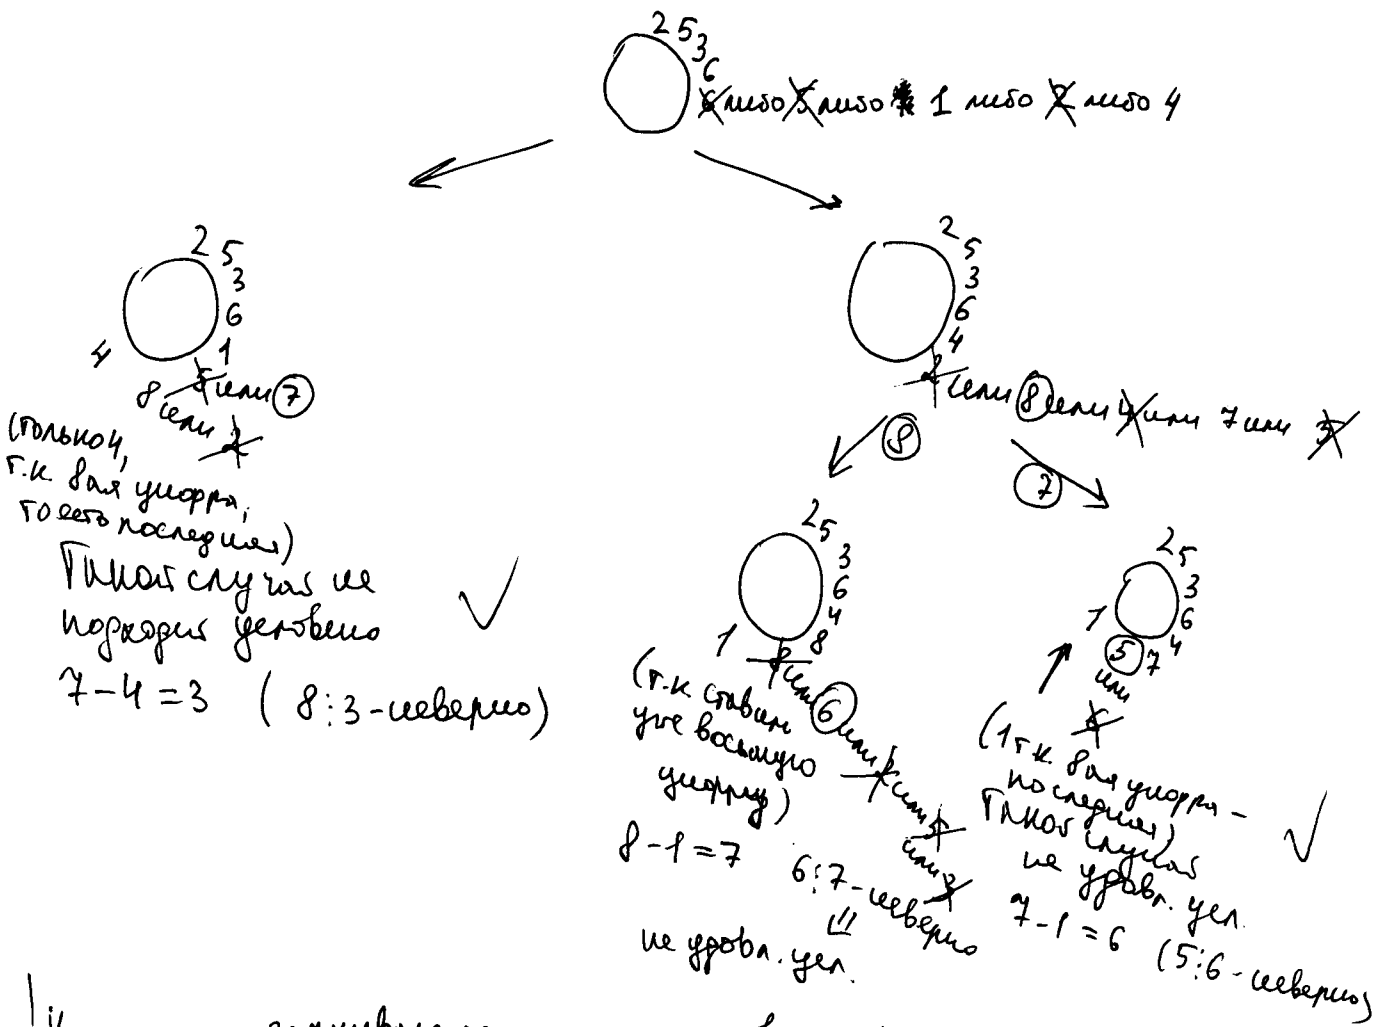 2 5
3
6
6 либо 5 либо 1 либо 2 либо 4
2 5
3
6
1
4
5 или 7
8 или 2
(только 4,
т.к. 8ая цифра,
то есть последняя)
Такой случай не
подходит условию
7-4=3 (8⋮3-неверно)
2
5
3
6
4
2 или 8 или 4 или 7 или 5
8
7
2 5
3
6
4
8
1
или 6 или 2 или 5
или 3
(т.к. ставим
уже восьмую
цифру)
8-1=7
6⋮7-неверно
⇓
не удовл. усл.
2 5
3
6
4
7
5
1
или
6
(1 т.к. 8ая цифра -
последняя)
Такой случай
не удовл. усл.
7-1=6 (5⋮6-неверно)